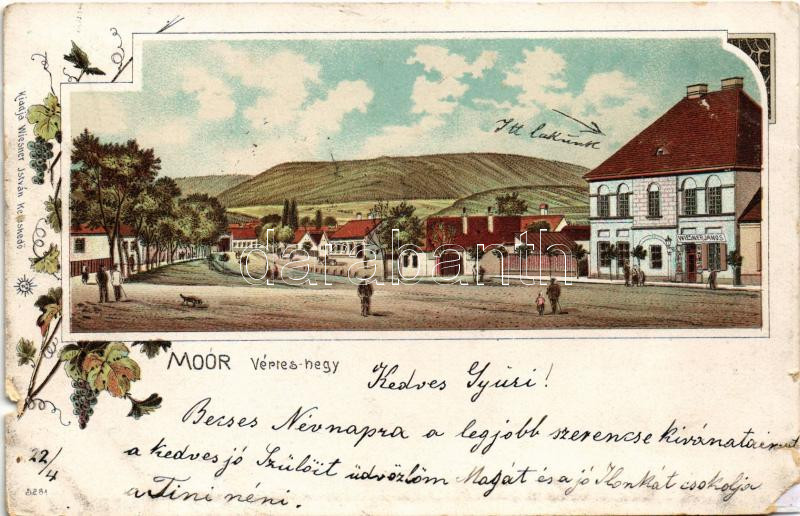 Itt lakunk
WIESNER JÁNOS
darabanth
Kiadja Wiesner István Kereskedő
MOÓR Vértes-hegy
Kedves Gyuri!
Becses Névnapra a legjobb szerencse kivánataimat
a kedves jó Szülőit üdvözlöm Magát és a jó Ilonkát csokolja
a Tini néni.
22/4
5281